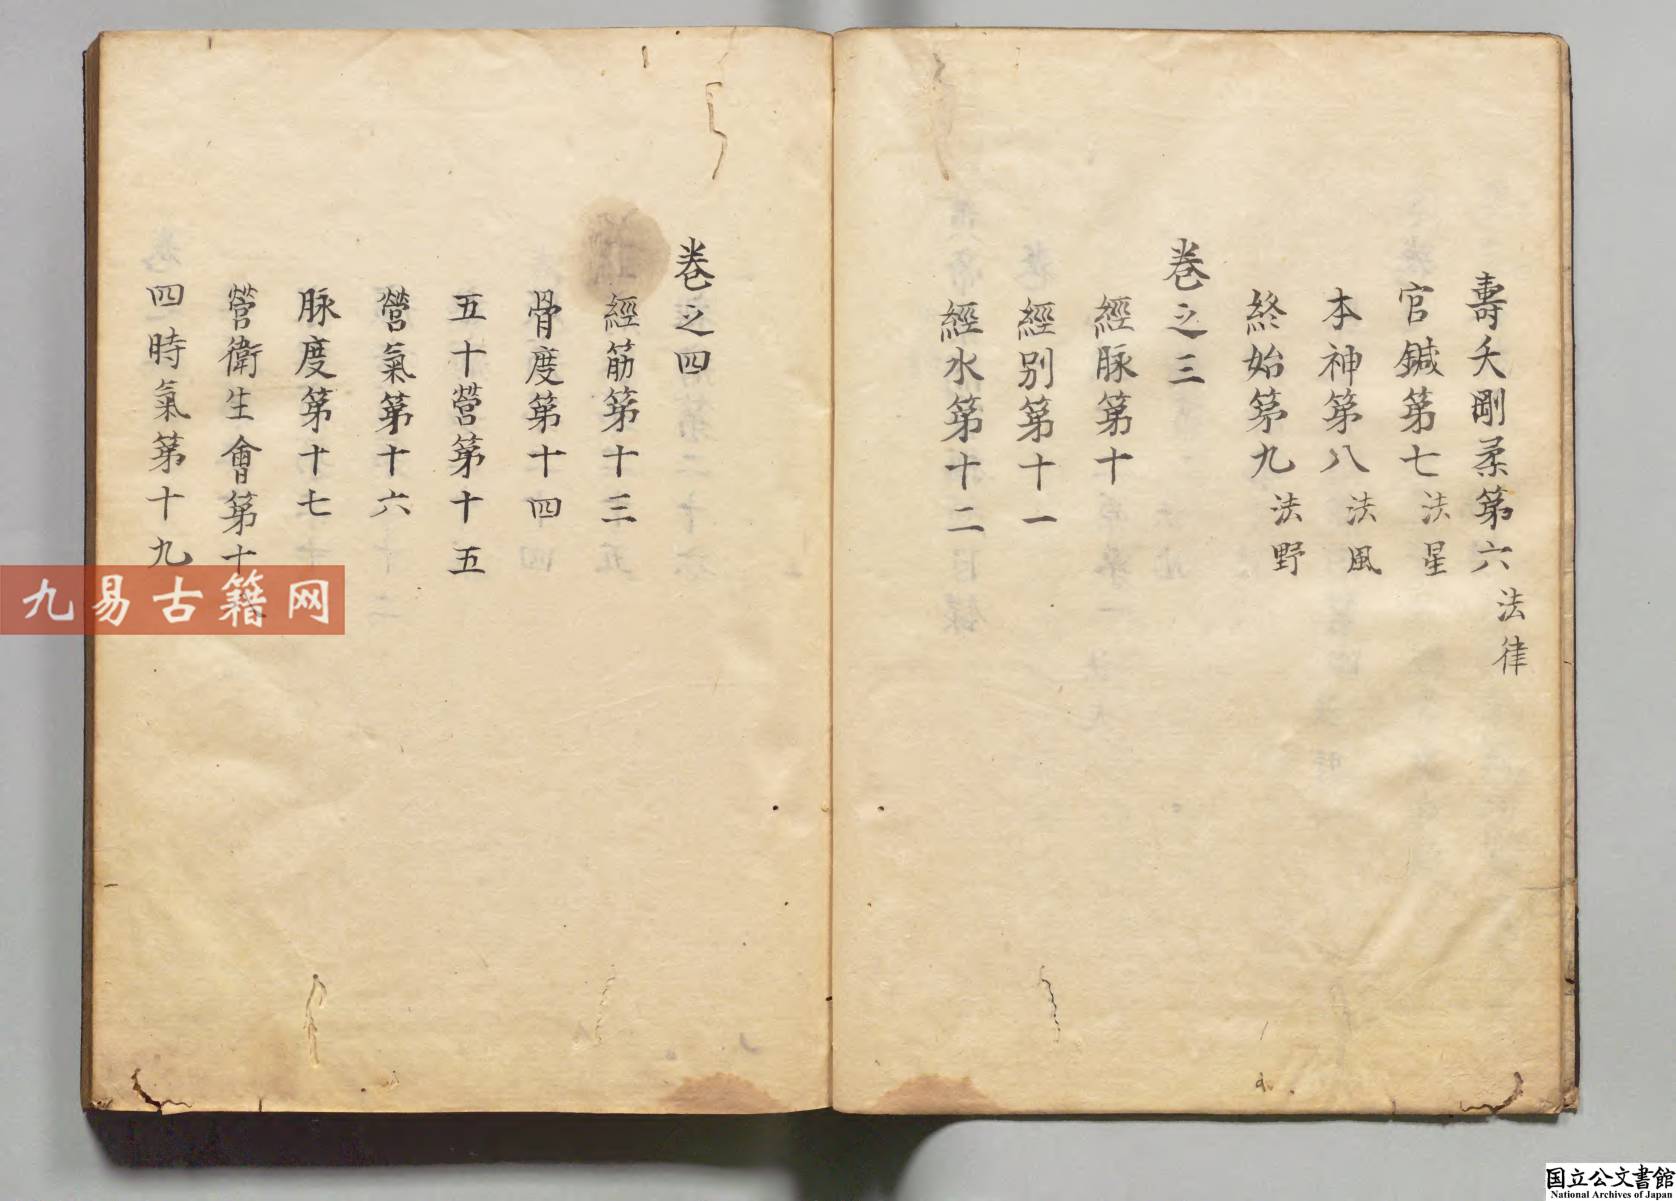 壽夭剛柔第六法律
官鍼第七法星
本神第八法風
終始第九法野
卷之三
經脉第十
經别第十一
經水第十二
卷之四
經筋第十三
骨度第十四
五十營第十五
營氣第十六
脉度第十七
營衛生會第十
四時氣第十九
九易古籍网
国立公文書館
National Archives of Japan